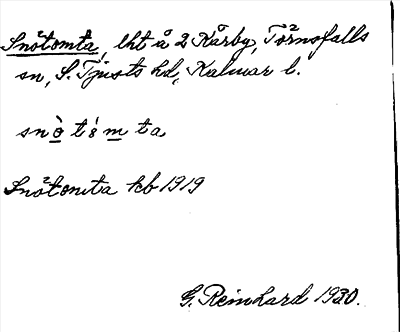 Snötomta, lht å 2 Kårby, Törnsfalls
sn, S. Tjusts hd, Kalmar l.
snò̱ té m̱ ta
Snötomta kb 1919
G. Reinhard 1930.